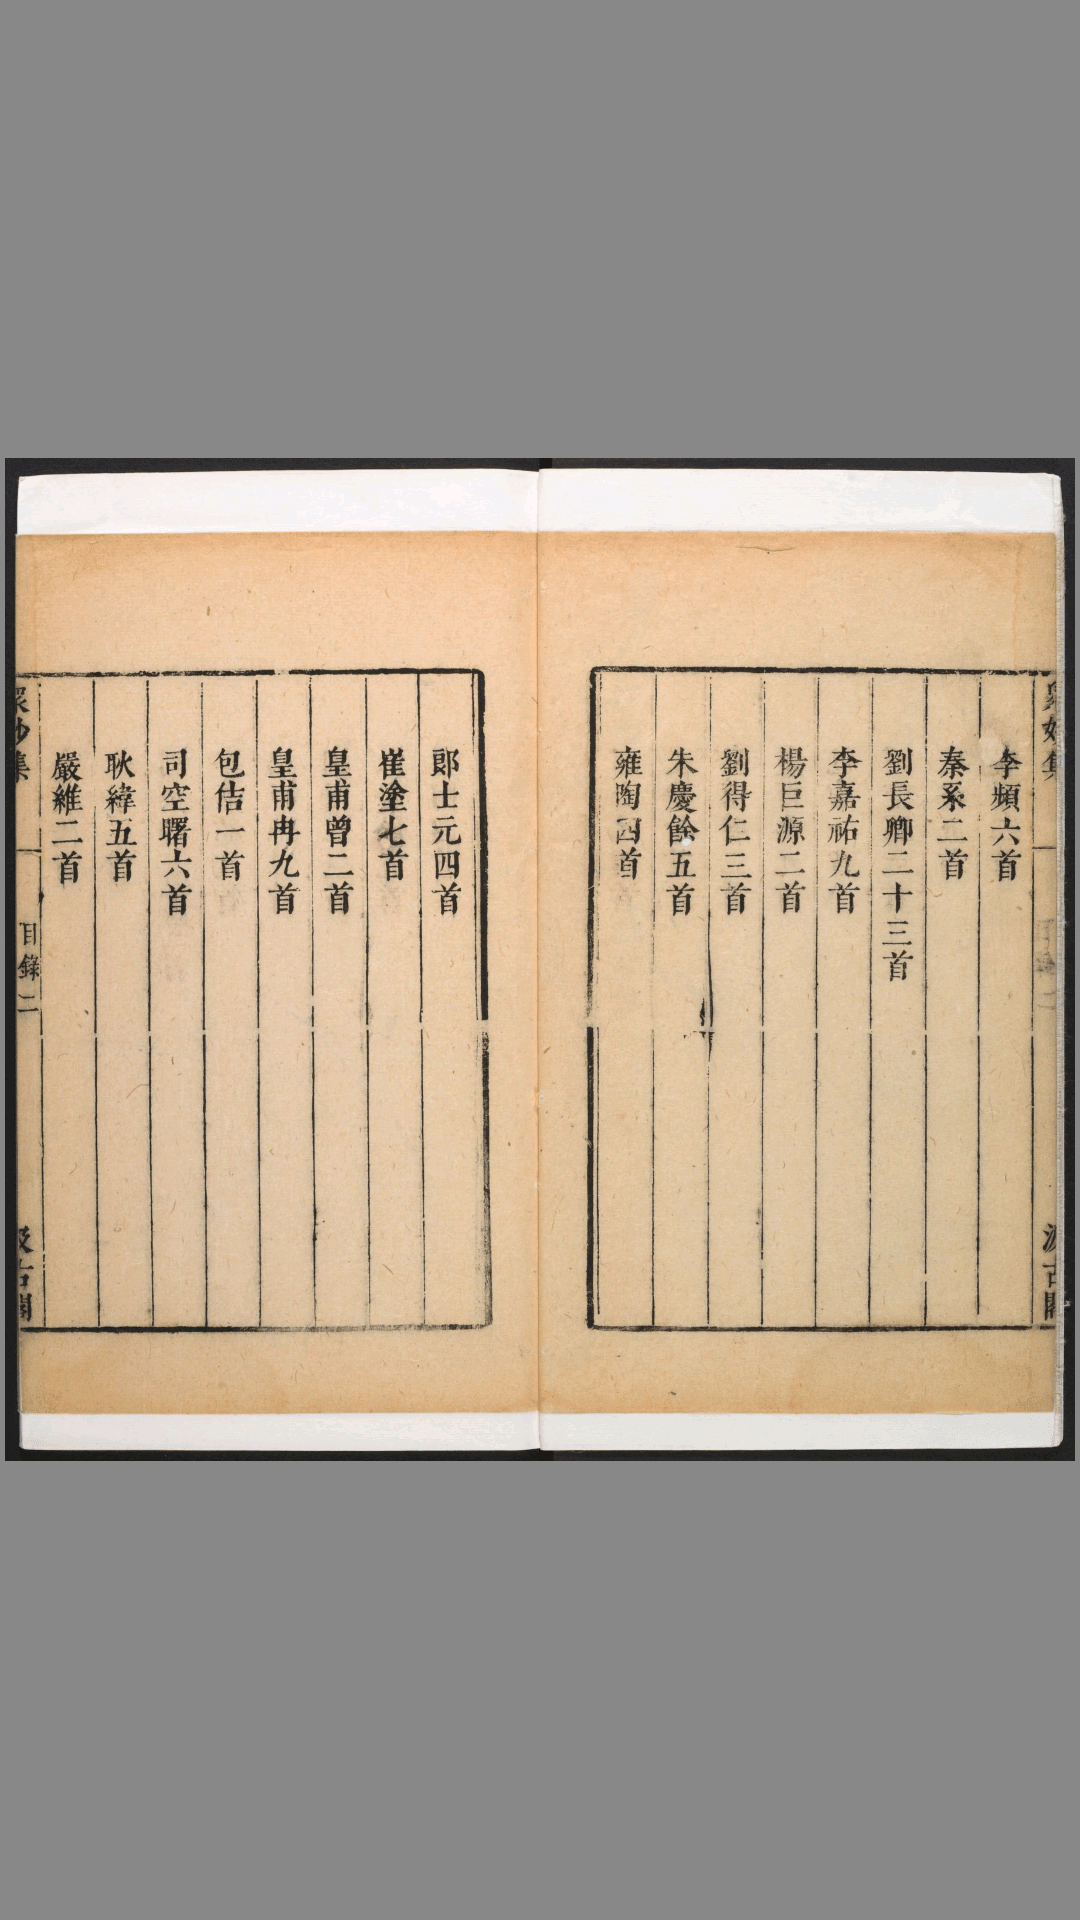 眾妙集
汲古閣
李頻六首
秦系二首
劉長卿二十三首
李嘉祐九首
楊巨源二首
劉得仁三首
朱慶餘五首
雍陶四首
郎士元四首
崔塗七首
皇甫曾二首
皇甫冉九首
包佶一首
司空曙六首
耿緯五首
嚴維二首
眾妙集
目錄二
汲古閣